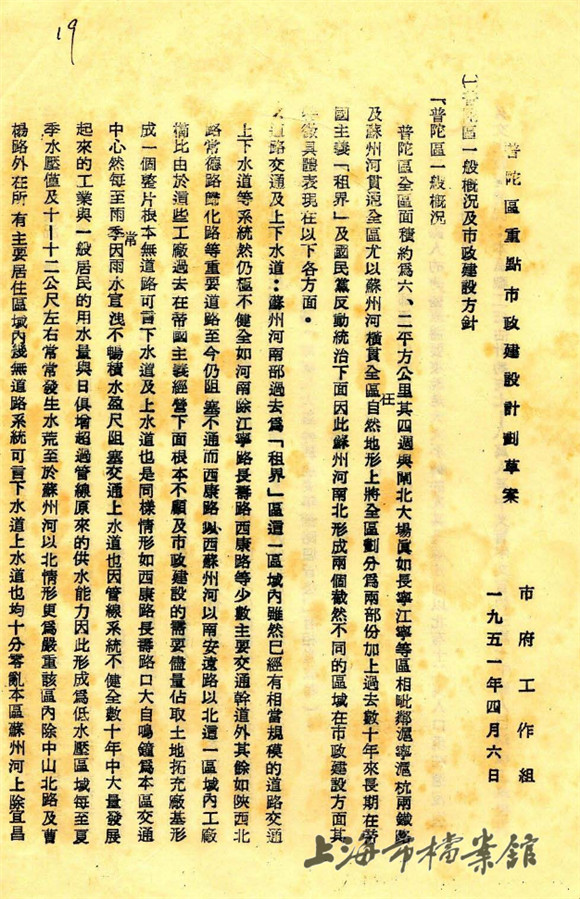 19
普陀區重點市政建設計劃草案
市府工作組
一九五一年四月六日
㈠普陀區一般概況及市政建設方針
『普陀區一般概況
普陀區全區面積約爲六、二平方公里其四週與閘北大場眞如長寧江寧等區相毗鄰滬寧滬杭兩鐵路
及蘇州河貫逷全區尤以蘇州河橫貫全區自然地形上將全區劃分爲兩部份加上過去數十年來長期在帝
任
國主義「租界」及國民黨反動統治下面因此蘇州河南北形成兩個截然不同的區域在市政建設方面其
特徵具體表現在以下各方面。
道路交通及上下水道：蘇州河南部過去爲「租界」區這一區域內雖然已經有相當規模的道路交通
上下水道等系統然仍極不健全如河南除江寧路長壽路西康路等少數主要交通幹道外其餘如陝西北
路常德路歸化路等重要道路至今仍阻塞不通而西康路以西蘇州河以南安遠路以北這一區域內工廠
櫛比由於這些工廠過去在帝國主義經營下面根本不顧及市政建設的需要儘量佔取土地拓充廠基形
成一個整片根本無道路可言下水道及上水道也是同樣情形如西康路長壽路口大自鳴鐘爲本區交通
常
中心然每至雨季因雨水宣洩不暢積水盈尺阻塞交通上水道也因管線系統不健全數十年中大量發展
起來的工業與一般居民的用水量與日俱增超過管線原來的供水能力因此形成爲低水壓區域每至夏
季水壓僅及十—十二公尺左右常常發生水荒至於蘇州河以北情形更爲嚴重該區內除中山北路及曹
楊路外在所有主要居住區域內幾無道路系統可言下水道上水道也均十分零亂本區蘇州河上除宜昌
上海市檔案館